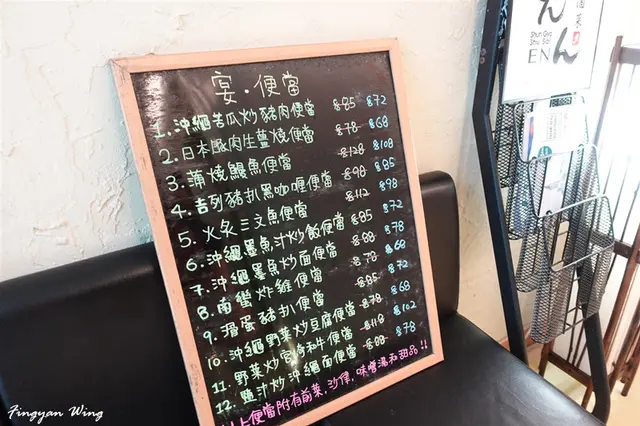 宴·便當
1. 沖繩苦瓜炒豬肉便當 $85 $72
2. 日本豚肉生薑燒便當 $78 $68
3. 蒲燒鰻魚便當 $128 $108
4. 吉列豬扒黑咖喱便當 $98 $85
5. 火炙三文魚便當 $112 $98
6. 沖繩墨魚汁炒飯便當 $85 $72
7. 沖繩墨魚炒面便當 $88 $78
8. 南蠻炸雞便當 $78 $68
9. 滑蛋豬扒便當 $85 $72
10. 沖繩野菜炒豆腐便當 $78 $68
11. 野菜炒宮崎和牛便當 $118 $102
12. 鹽汁炒沖繩面便當 $88 $78
以上便當附有前菜,沙律,味噌湯和甜品!!
えん
EN
Fingyan Wing